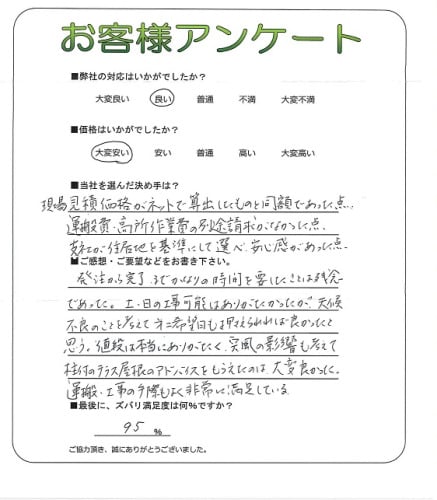 お客様アンケート
■弊社の対応はいかがでしたか？
大変良い 良い 普通 不満 大変不満
■価格はいかがでしたか？
大変安い 安い 普通 高い 大変高い
■当社を選んだ決め手は？
現場見積価格がネットで算出したものと同額であった点。
運搬費・高所作業費の別途請求がなかった点。
支社が住居地を基準にして選べ、安心感があった点。
■ご感想・ご要望などをお書き下さい。
発注から完了までかなりの時間を要したことは残念
であった。土・日の工事可能はありがたかったが、天候
不良のことも考えて第二希望日も押えられれば良かったと
思う。値段は本当にありがたく、突風の影響も考えて
柱付のテラス屋根のアドバイスをもらえたのは大変良かった。
運搬・工事の手際もよく非常に満足している。
■最後に、ズバリ満足度は何%ですか？
95 %
ご協力頂き、誠にありがとうございました。